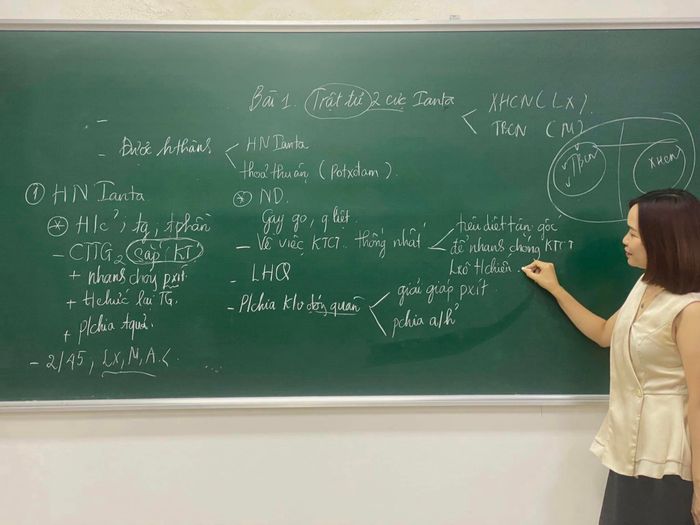 Bài 1. Trật tự 2 cực Ianta
XHCN (LX).
TBCN (M)
-
- Được hthàn?
HN Ianta
thoả thuận (Potxdam).
TBCN
XHCN
① HN Ianta
* H/c?, tg, tphần
- CTTG2 sắp KT
+ nhanh chóng pxít
+ tchức lại TG.
+ p/chia tquả.
- 2/45, LX, M, A.
* ND.
Gay go, q liệt.
- Về việc KTCT thống nhất
tiêu diệt tận gốc
để nhanh chóng KTCT
Lxô tchiến
- LHQ
- P/chia K/v đóng quân
giải giáp pxít.
pchia a/h?